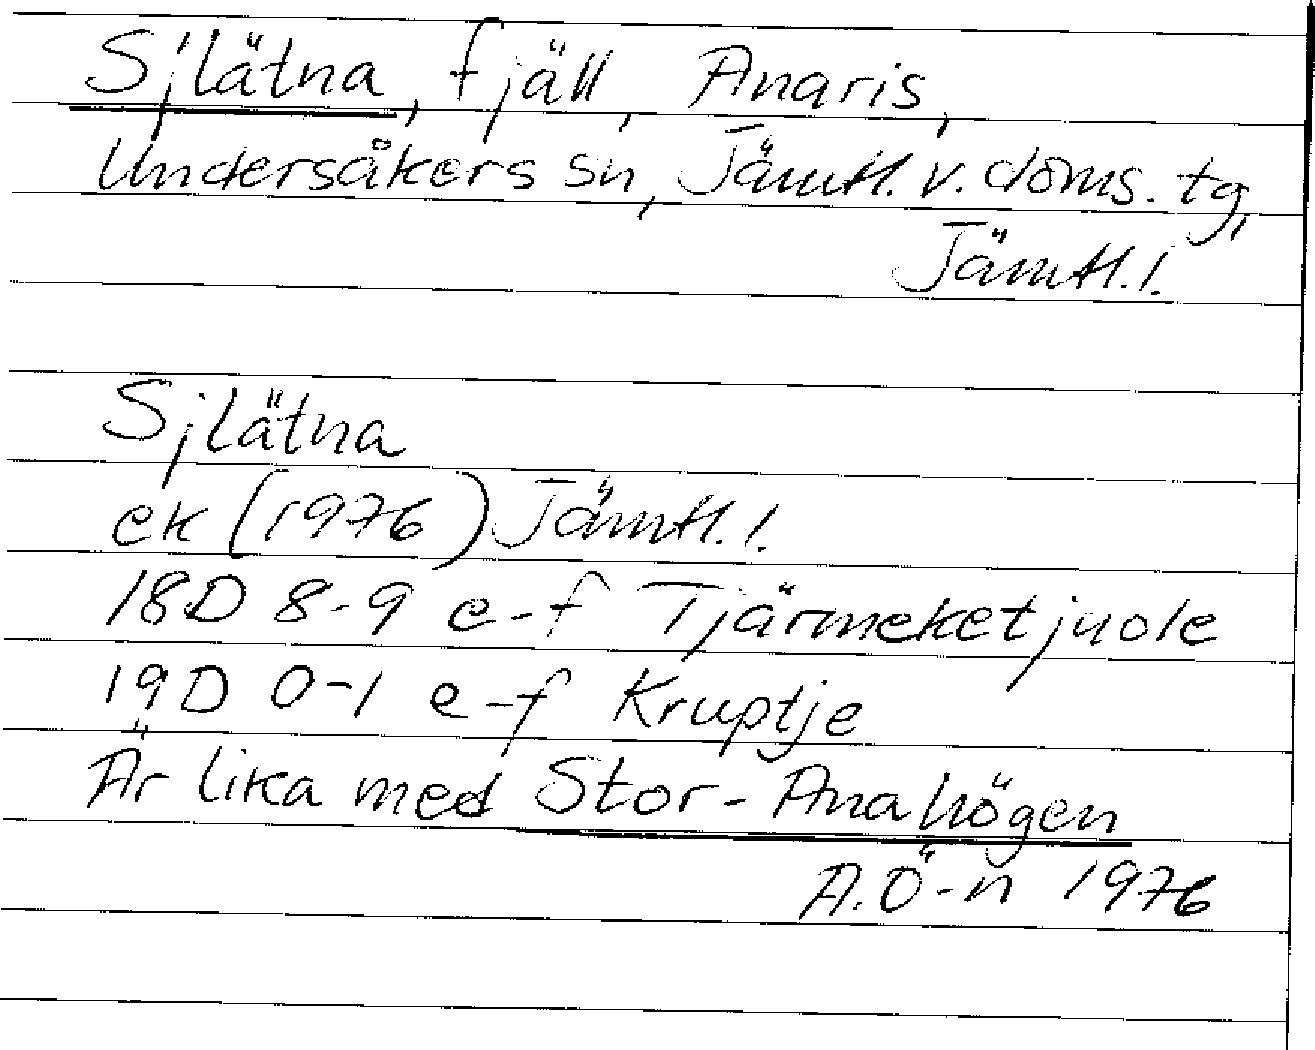 Sjlätna, fjäll, Anaris,
Undersåkers sn, Jämtl. v. doms. tg,
Jämtl. l.
Sjlätna
ek (1976) Jämtl. l.
18D 8-9 e-f Tjärmeketjuole
19D 0-1 e-f Kruptje
Är lika med Stor-Anahögen
A.Ö-n 1976